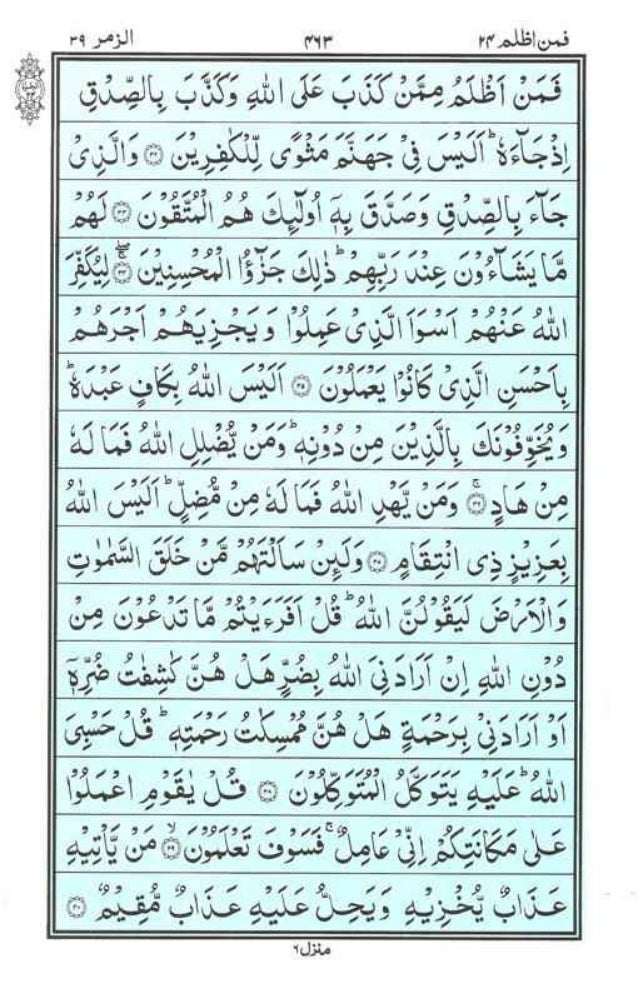 فمن اظلم ۲۴ ۴۶۳ الزمر ۳۹
فَمَنْ اَظْلَمُ مِمَّنْ كَذَبَ عَلَى اللهِ وَكَذَّبَ بِالصِّدْقِ
اِذْ جَآءَهٗ ؕ اَلَيْسَ فِىْ جَهَنَّمَ مَثْوًى لِّلْكٰفِرِيْنَ ۝۳۲ وَالَّذِىْ
جَآءَ بِالصِّدْقِ وَصَدَّقَ بِهٖۤ اُولٰٓئِكَ هُمُ الْمُتَّقُوْنَ ۝۳۳ لَهُمْ
مَّا يَشَآءُوْنَ عِنْدَ رَبِّهِمْ ؕ ذٰلِكَ جَزٰٓؤُا الْمُحْسِنِيْنَ ۝۳۴ لِيُكَفِّرَ
اللهُ عَنْهُمْ اَسْوَاَ الَّذِىْ عَمِلُوْا وَيَجْزِيَهُمْ اَجْرَهُمْ
بِاَحْسَنِ الَّذِىْ كَانُوْا يَعْمَلُوْنَ ۝۳۵ اَلَيْسَ اللهُ بِكَافٍ عَبْدَهٗ ؕ
وَيُخَوِّفُوْنَكَ بِالَّذِيْنَ مِنْ دُوْنِهٖ ؕ وَمَنْ يُّضْلِلِ اللهُ فَمَا لَهٗ
مِنْ هَادٍ ۚ ۝۳۶ وَمَنْ يَّهْدِ اللهُ فَمَا لَهٗ مِنْ مُّضِلٍّ ؕ اَلَيْسَ اللهُ
بِعَزِيْزٍ ذِى انْتِقَامٍ ۝۳۷ وَلَئِنْ سَاَلْتَهُمْ مَّنْ خَلَقَ السَّمٰوٰتِ
وَالْاَرْضَ لَيَقُوْلُنَّ اللهُ ؕ قُلْ اَفَرَءَيْتُمْ مَّا تَدْعُوْنَ مِنْ
دُوْنِ اللهِ اِنْ اَرَادَنِىَ اللهُ بِضُرٍّ هَلْ هُنَّ كٰشِفٰتُ ضُرِّهٖۤ
اَوْ اَرَادَنِىْ بِرَحْمَةٍ هَلْ هُنَّ مُمْسِكٰتُ رَحْمَتِهٖ ؕ قُلْ حَسْبِىَ
اللهُ ؕ عَلَيْهِ يَتَوَكَّلُ الْمُتَوَكِّلُوْنَ ۝۳۸ قُلْ يٰقَوْمِ اعْمَلُوْا
عَلٰى مَكَانَتِكُمْ اِنِّىْ عَامِلٌ ۚ فَسَوْفَ تَعْلَمُوْنَ ۙ ۝۳۹ مَنْ يَّاْتِيْهِ
عَذَابٌ يُّخْزِيْهِ وَيَحِلُّ عَلَيْهِ عَذَابٌ مُّقِيْمٌ ۝۴۰
منزل ۶